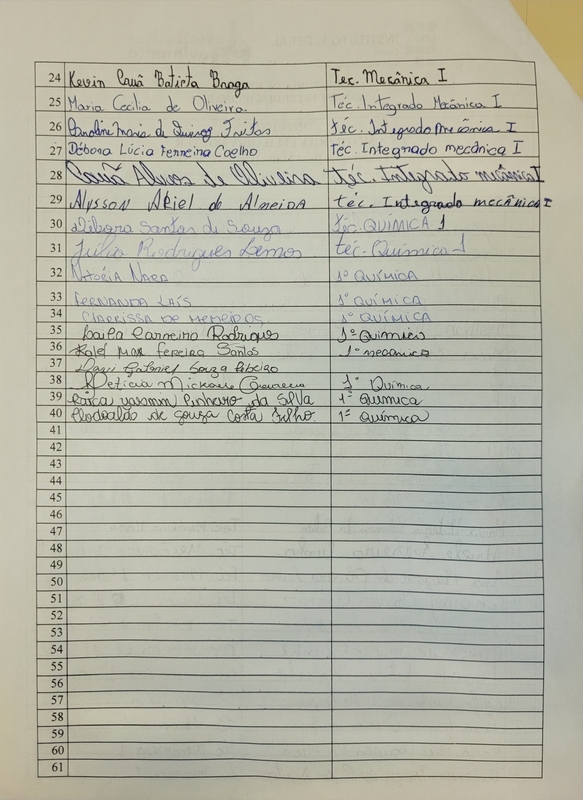 24 Kevin Cauã Batista Braga Tec. Mecânica I
25 Maria Cecilia de Oliveira. Téc. Integrado Mecânica I
26 Caroline Maria de Queiroz Freitas téc. Integrado mecânica I
27 Débora Lúcia Ferreira Coelho Téc. Integrado mecânica I
28 Cauã Alves de Oliveira téc. Integrado mecânica I
29 Alysson Ariel de Almeida téc. Integrado mecânica I
30 Débora Santos de Souza téc. QUÍMICA 1
31 Julia Rodrigues Lemos téc. Química 1
32 Vitória Nara 1º QUÍMICA
33 FERNANDA LAÍS 1º QUÍMICA
34 CLARISSA DE MEDEIROS 1º QUÍMICA
35 Carneiro Rodrigues 1º Química
36 Max Ferreira Santos 1º mecânica
37 Davi Gabriel Souza Ribeiro
38 Leticia 1º Química
39 yasmin Pinheiro da Silva 1º Química
40 Clodoaldo de Souza Costa Filho. 1º Química
41
42
43
44
45
46
47
48
49
50
51
52
53
54
55
56
57
58
59
60
61